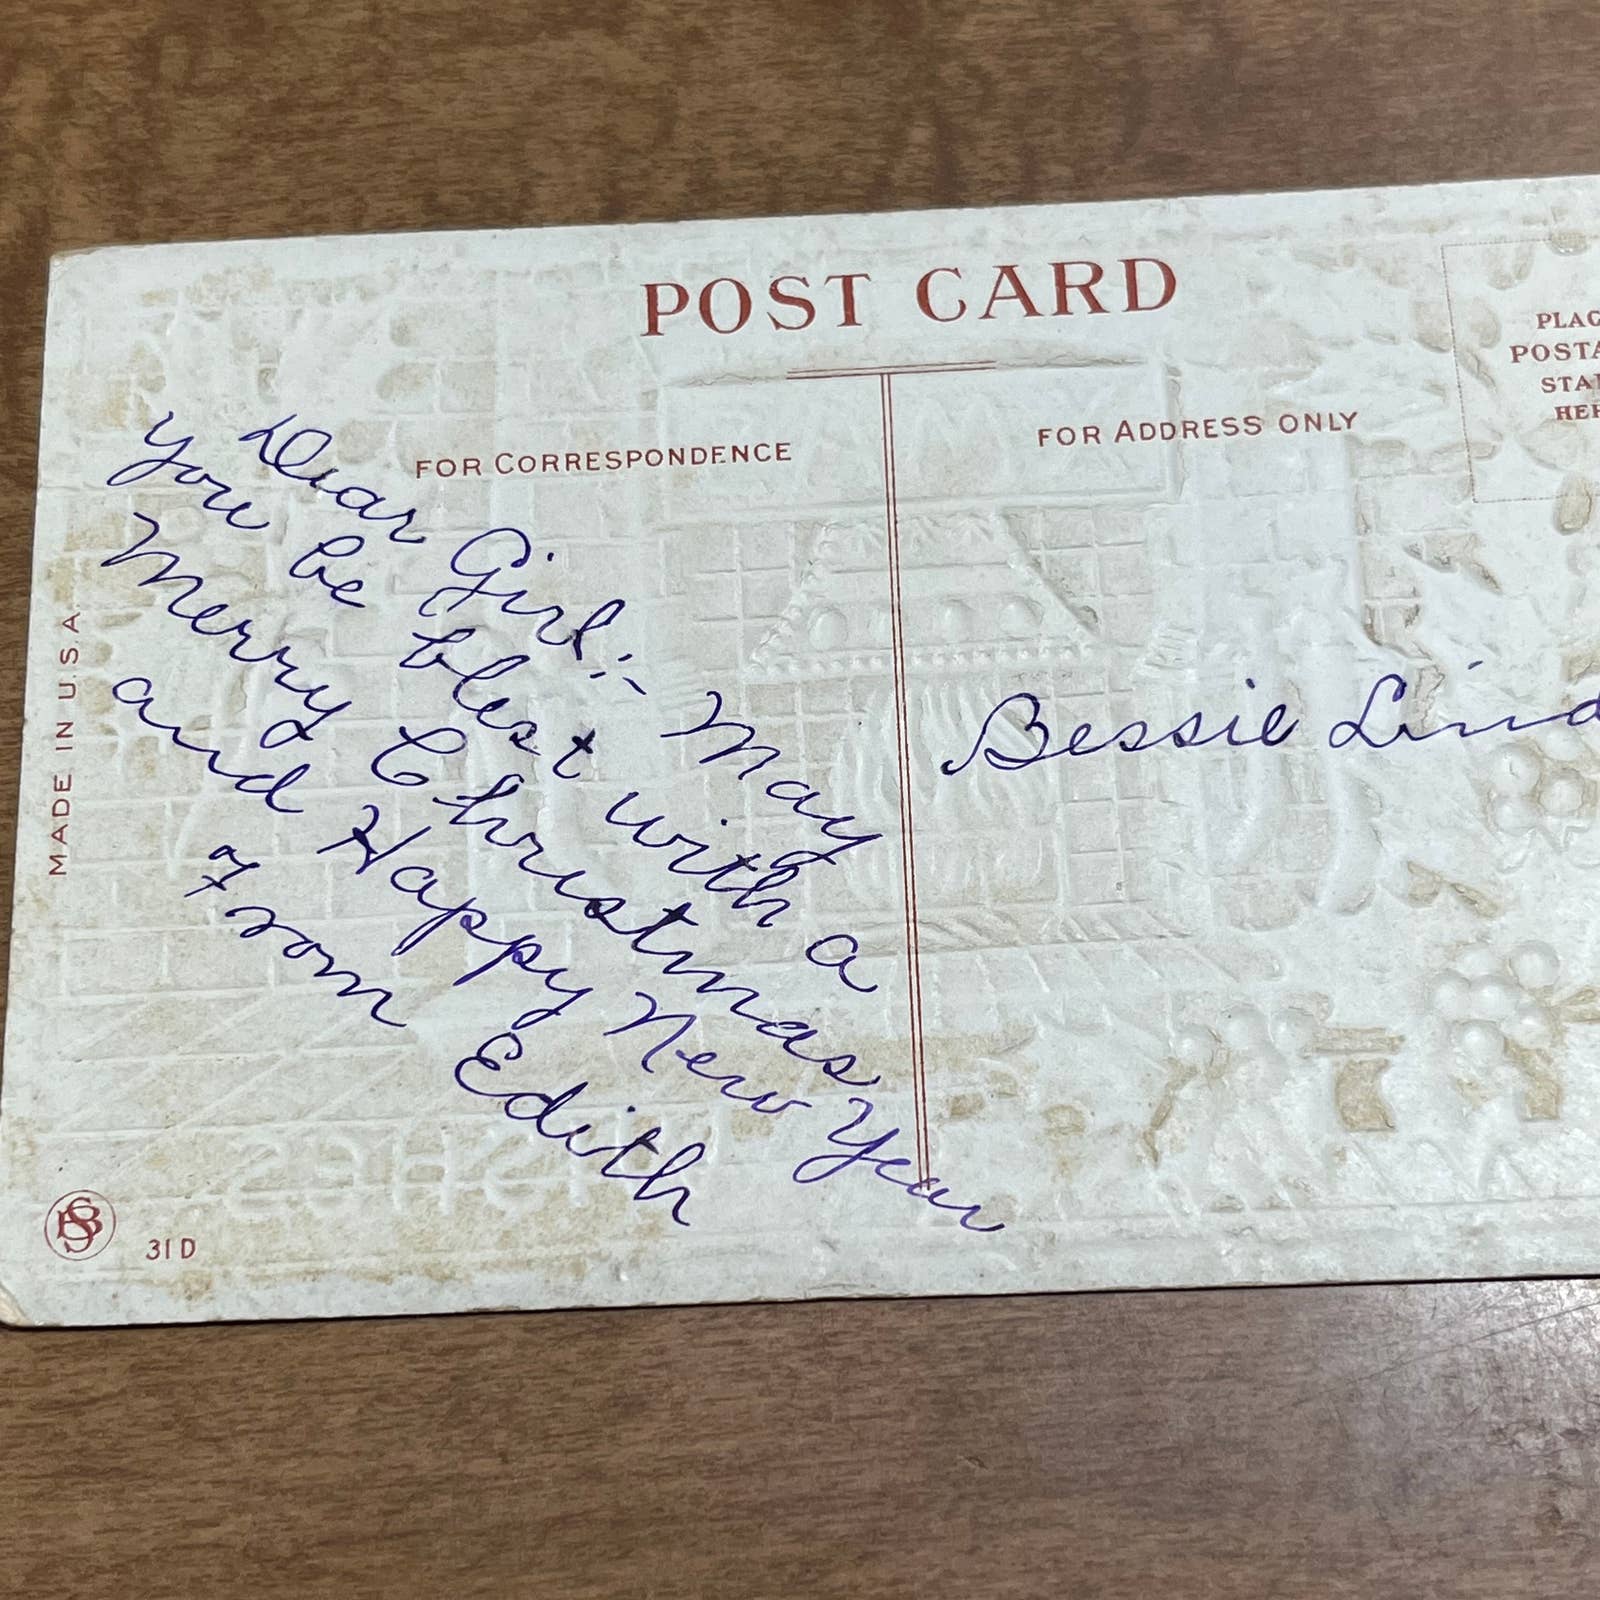 POST CARD
PLAC
POSTA
STA
HER
FOR CORRESPONDENCE
FOR ADDRESS ONLY
Dear Girl:- May
you be blest with a
Merry Christmas
and Happy New Year
From Edith
Bessie Lind
MADE IN U.S.A
SB
31D